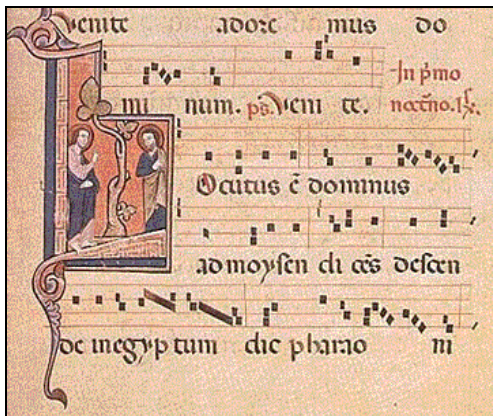 venite adore mus do
In p̄mo
mi num. ps. Veni te. noct̄no. ℟.
Locutus ē dominus
ad moysen di cēs descen
de in egyp tum dic pharao ni